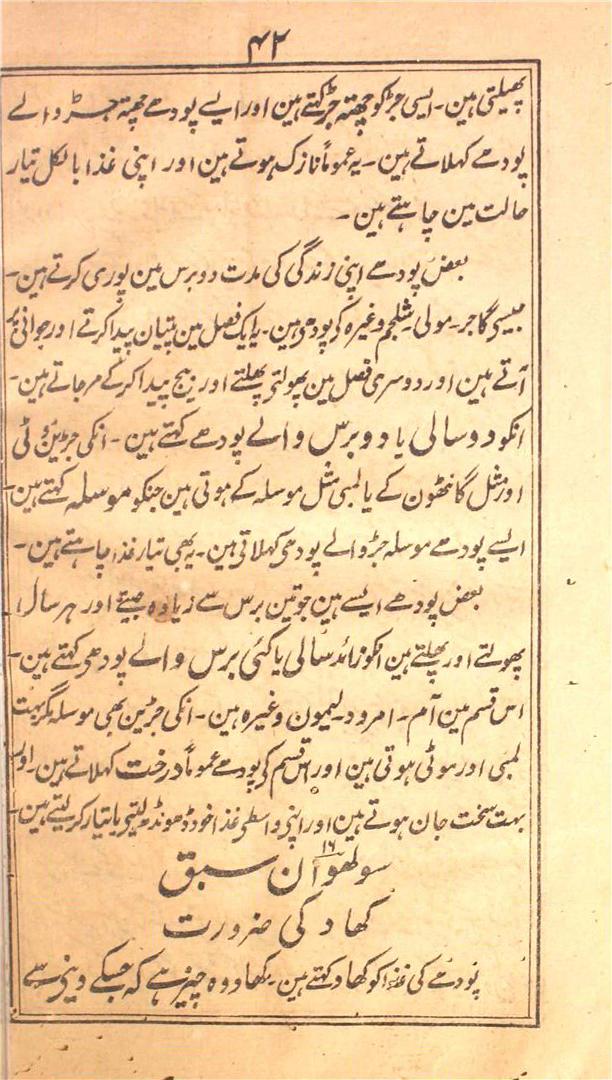 ۴۲
پھیلتی ہین۔ ایسی جڑ کو چھتہ جڑ کہتے ہین اور ایسے پودھے چھتہ جڑ والے
پودھے کہلاتے ہین۔ یہ عموماً نازک ہوتے ہین اور اپنی غذا بالکل تیار
حالت مین چاہتے ہین۔
بعض پودھے اپنی زندگی کی مدت دو برس مین پوری کرتے ہین۔
جیسی گاجر۔ مولی۔ شلجم وغیرہ کی پودھی ہین۔ یہ ایک فصل مین پتیان پیدا کرتے اور جوانی پر
آتے ہین اور دوسری فصل مین پھولتے پھلتے اور بیج پیدا کرکے مر جاتے ہین۔
انکو دو سالی یا دو برس والے پودھے کہتے ہین۔ انکی جڑین موٹی
اور مثل گانٹھون کے یا لمبی مثل موسلہ کے ہوتی ہین جنکو موسلہ کہتے ہین۔
ایسے پودھے موسلہ جڑ والے پودھی کہلاتی ہین۔ یہ بھی تیار غذا چاہتے ہین۔
بعض پودھے ایسے ہین جو تین برس سے زیادہ جیتے اور ہر سال
پھولتے اور پھلتے ہین انکو زائد سالی یا کئی برس والے پودھی کہتے ہین۔
اس قسم مین آم۔ امرود۔ لیمون وغیرہ ہین۔ انکی جڑین بھی موسلہ مگر بہت
لمبی اور موٹی ہوتی ہین اور اس قسم کی پودھے عموماً درخت کہلاتے ہین۔ اور
بہت سخت جان ہوتے ہین اور اپنی واسطی غذا خود ڈھونڈھ لیتی یا تیار کر لیتے ہین۔
سولھوان ۱۶ سبق
کھاد کی ضرورت
پودھے کی غذا کو کھاد کہتے ہین۔ کھاد وہ چیز ہے کہ جسکے دینے سے